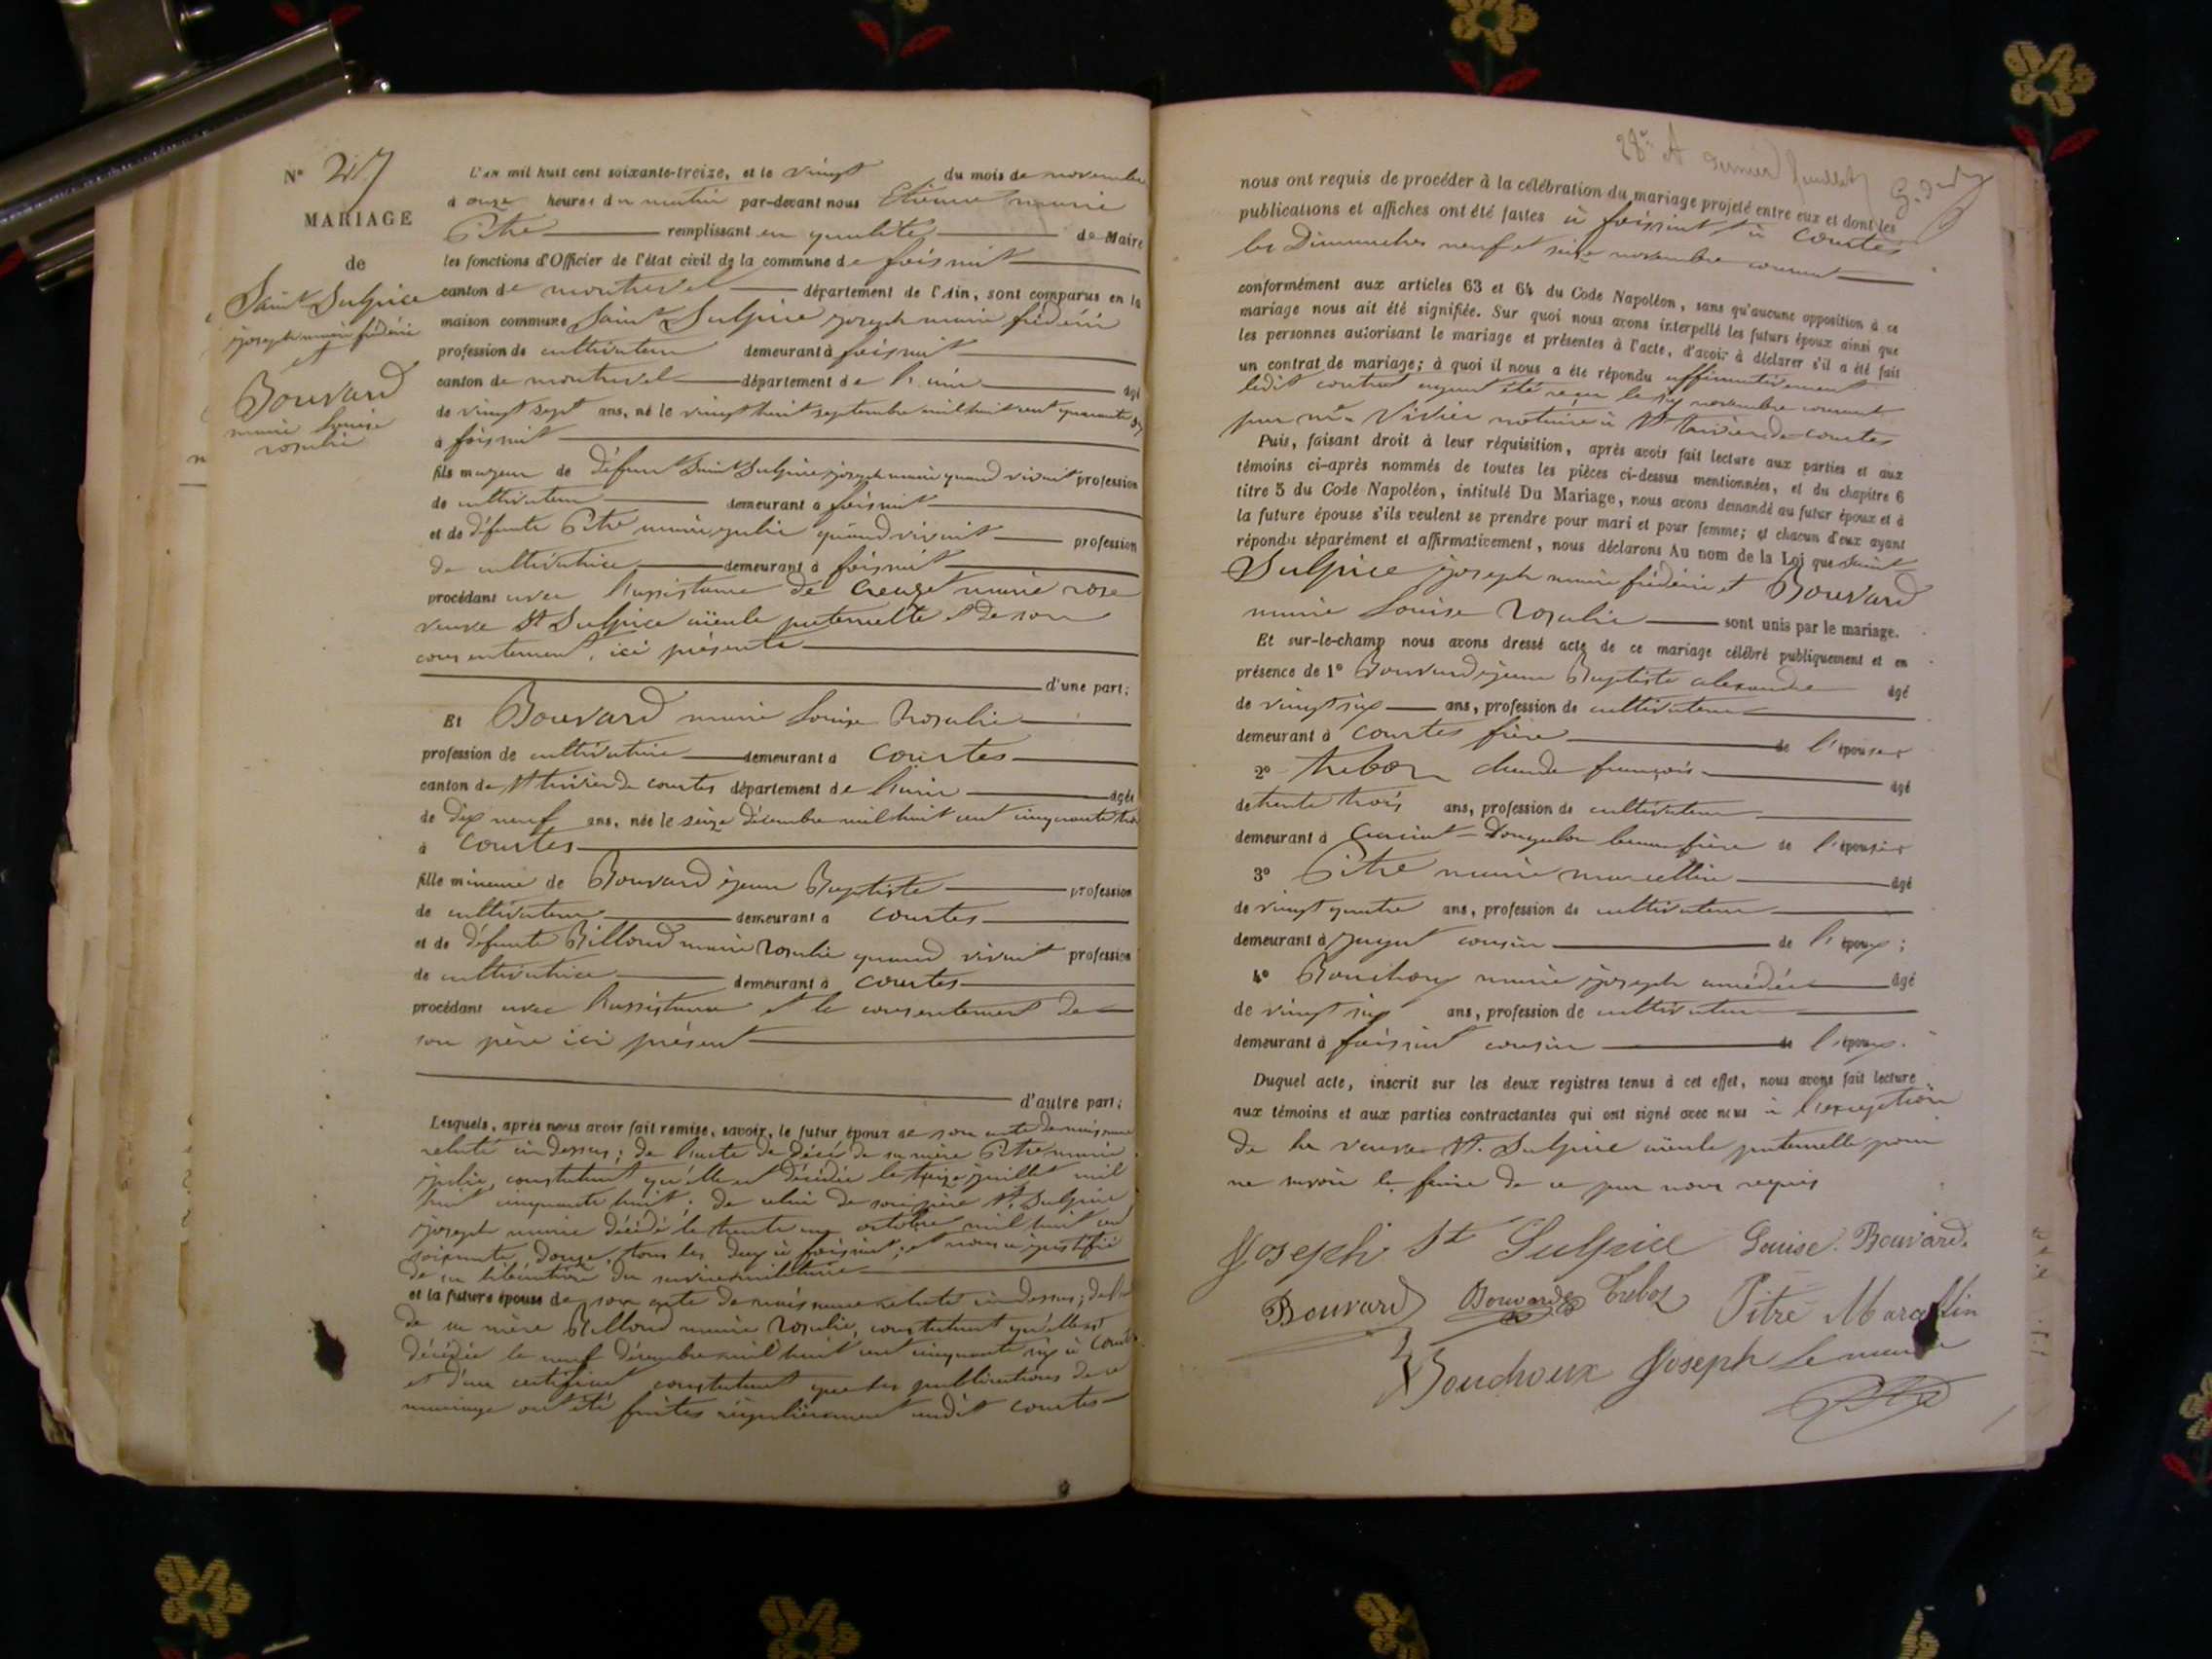 N° 27
MARIAGE
de
Saint Sulpice
joseph marie frédéric
et
Bouvard
marie Louise
rosalie
L'an mil huit cent soixante-treize, et le vingt du mois de novembre
à onze heures du matin par-devant nous Etienne marie
Pitre remplissant en qualité de Maire
les fonctions d'Officier de l'état civil de la commune de foissiat
canton de montrevel département de l'Ain, sont comparus en la
maison commune Saint Sulpice joseph marie frédéric
profession de cultivateur demeurant à foissiat
canton de montrevel département de l'ain âgé
de vingt sept ans, né le vingt huit septembre mil huit cent quarante six
à foissiat
fils majeur de défunt Saint Sulpice joseph marie quand vivait profession
de cultivateur demeurant à foissiat
et de défunte Pitre marie julie quand vivait profession
de cultivatrice demeurant à foissiat
procédant avec l'assistance de Creuzet marie rose
veuve St Sulpice aïeule paternelle et de son
consentement, ici présente
d'une part;
Et Bouvard marie Louise Rosalie
profession de cultivatrice demeurant à Courtes
canton de St trivier de courtes département de l'ain âgée
de dix neuf ans, née le seize décembre mil huit cent cinquante trois
à Courtes
fille mineure de Bouvard jean Baptiste profession
de cultivateur demeurant à Courtes
et de défunte Billoud marie Rosalie quand vivait profession
de cultivatrice demeurant à Courtes
procédant avec l'assistance et le consentement de
son père ici présent
d'autre part;
Lesquels, après nous avoir fait remise, savoir, le futur époux de son acte de naissance
relaté ci dessus; de l'acte de décès de sa mère Pitre marie
julie, constatant qu'elle est décédée le treize juillet mil
huit cinquante huit; de celui de son père St Sulpice
joseph marie décédé le trente un octobre mil huit cent
soixante douze, tous les deux à foissiat; et nous a justifié
de sa libération du service militaire
et la future épouse de son acte de naissance relaté ci dessus; de
de sa mère Billoud marie Rosalie, constatant qu'elle est
décédée le neuf décembre mil huit cent cinquante six à Courtes
et d'un certificat constatant que les publications de ce
mariage ont été faites régulièrement audit Courtes
28e et dernier feuillet
nous ont requis de procéder à la célébration du mariage projeté entre eux et dont les
publications et affiches ont été faites à foissiat et à Courtes
les Dimanches neuf et seize novembre courant
conformément aux articles 63 et 64 du Code Napoléon, sans qu'aucune opposition à ce
mariage nous ait été signifiée. Sur quoi nous avons interpellé les futurs époux ainsi que
les personnes autorisant le mariage et présentes à l'acte, d'avoir à déclarer s'il a été fait
un contrat de mariage; à quoi il nous a été répondu affirmativement
ledit contrat ayant été reçu le six novembre courant
par me Vivier notaire à St trivier de courtes
Puis, faisant droit à leur réquisition, après avoir fait lecture aux parties et aux
témoins ci-après nommés de toutes les pièces ci-dessus mentionnées, et du chapitre 6
titre 5 du Code Napoléon, intitulé Du Mariage, nous avons demandé au futur époux et à
la future épouse s'ils veulent se prendre pour mari et pour femme; et chacun d'eux ayant
répondu séparément et affirmativement, nous déclarons Au nom de la Loi que Saint
Sulpice joseph marie frédéric et Bouvard
marie Louise Rosalie sont unis par le mariage.
Et sur-le-champ nous avons dressé acte de ce mariage célébré publiquement et en
présence de 1° Bouvard jean Baptiste alexandre âgé
de vingt six ans, profession de cultivateur
demeurant à Courtes frère de l'épouse
2° treboz claude françois âgé
de trente trois ans, profession de cultivateur
demeurant à Curciat-Dongalon beau frère de l'épouse
3° Pitre marie marcellin âgé
de vingt quatre ans, profession de cultivateur
demeurant à jayat cousin de l'époux;
4° Bouchoux marie joseph amédée âgé
de vingt six ans, profession de cultivateur
demeurant à foissiat cousin de l'époux.
Duquel acte, inscrit sur les deux registres tenus à cet effet, nous avons fait lecture
aux témoins et aux parties contractantes qui ont signé avec nous à l'exception
de la veuve St. Sulpice aïeule paternelle pour
ne savoir le faire de ce par nous requis
Joseph St Sulpice Louise Bouvard.
Bouvard Bouvard Treboz Pitre Marcellin
Bouchoux Joseph Le maire
Pitre